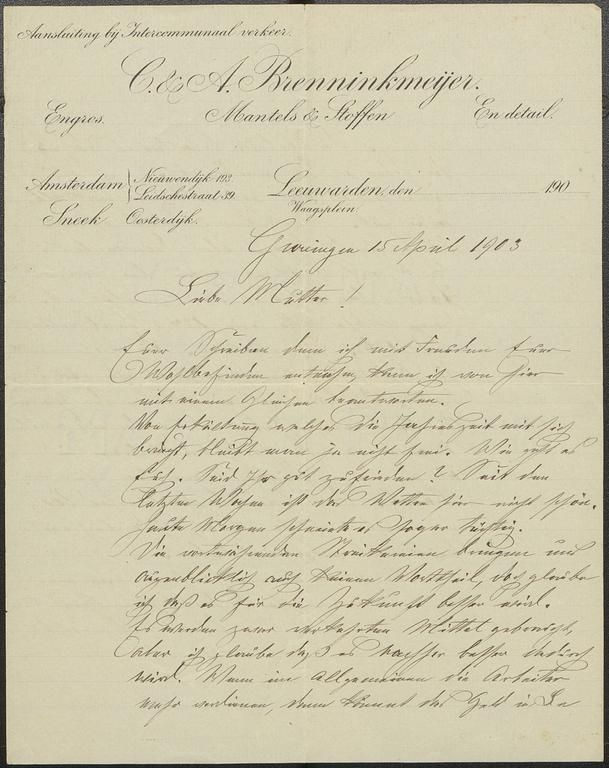 Aansluiting bij Intercommunaal verkeer.
C. & A. Brenninkmeijer.
Engros. Mantels & Stoffen En detail.
Amsterdam Nieuwendijk 193
Leidschestraat 39 Leeuwarden, den 190
Waagsplein.
Sneek Oosterdijk.
Groningen 15 April 1903
Liebe Mutter!
Euer Schreiben dem ich mit Freuden Euer
Wohlbefinden entnehme, kann ich von hier
mit einem Gleichen beantworten.
Von Erkältung welches die Jahreszeit mit sich
bringt, bleibt man ja nicht frei. Wie geht es
Euch. Seid Ihr gut zufrieden? Seit den
letzten Wochen ist das Wetter hier nicht schön.
Heute Morgen schneite es sogar tüchtig.
Die Streikereien bringen uns
augenblicklich auch keinen Vortheil, doch glaube
ich daß es für die Zukunft besser wird.
Es werden zwar verkehrten Mittel gebraucht,
aber ich glaube daß es nachher besser dadurch
wird. Wenn im Allgemeinen die Arbeiter
mehr verdienen, dann kommt das Geld in die